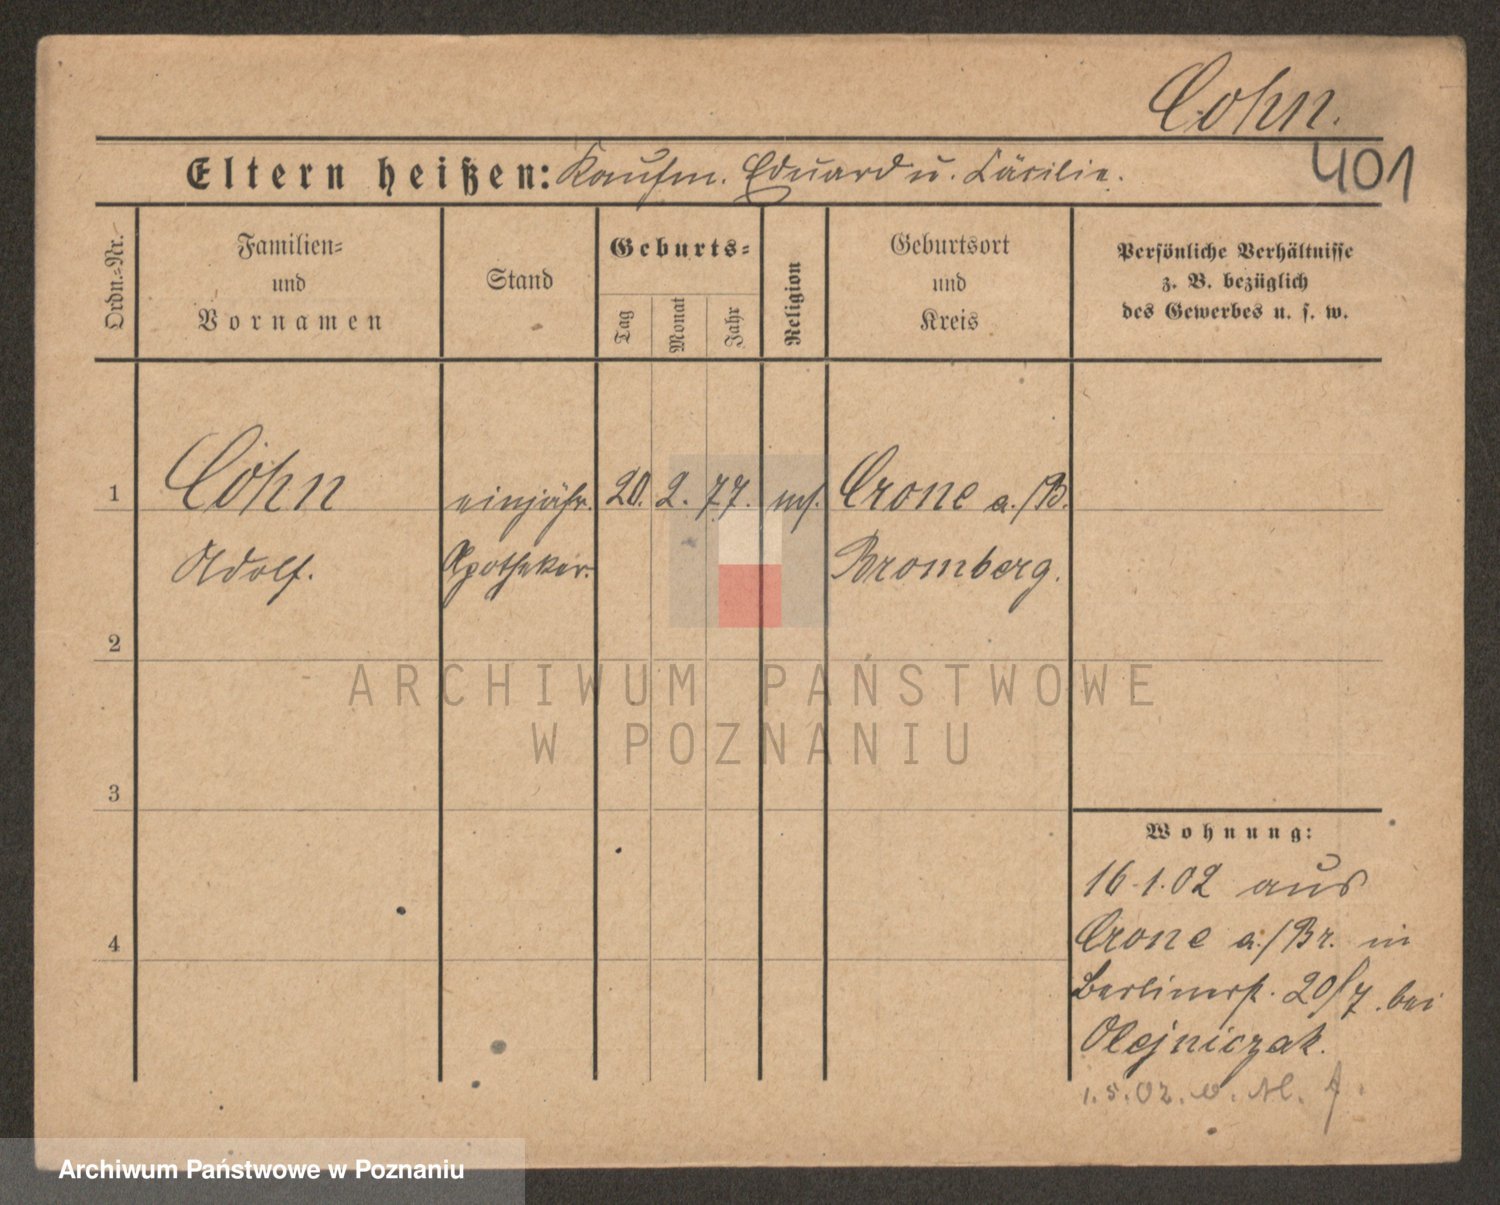 Cohn.
401
Eltern heißen: Kaufm. Eduard u. Cäcilie.
Ordn.-Nr.
Familien-
und
Vornamen
Stand
Geburts-
Tag
Monat
Jahr
Religion
Geburtsort
und
Kreis
Persönliche Verhältnisse
z. B. bezüglich
des Gewerbes u. s. w.
1 Cohn einjähr. 20. 2. 77. mos. Crone a./B.
Adolf. Apotheker. Bromberg.
2
3
4
Wohnung:
16.1.02 aus
Crone a./Br. in
Berlinerst. 20/7. bei
Olejniczak.
1.5.02. v. M.
ARCHIWUM PAŃSTWOWE
W POZNANIU
Archiwum Państwowe w Poznaniu